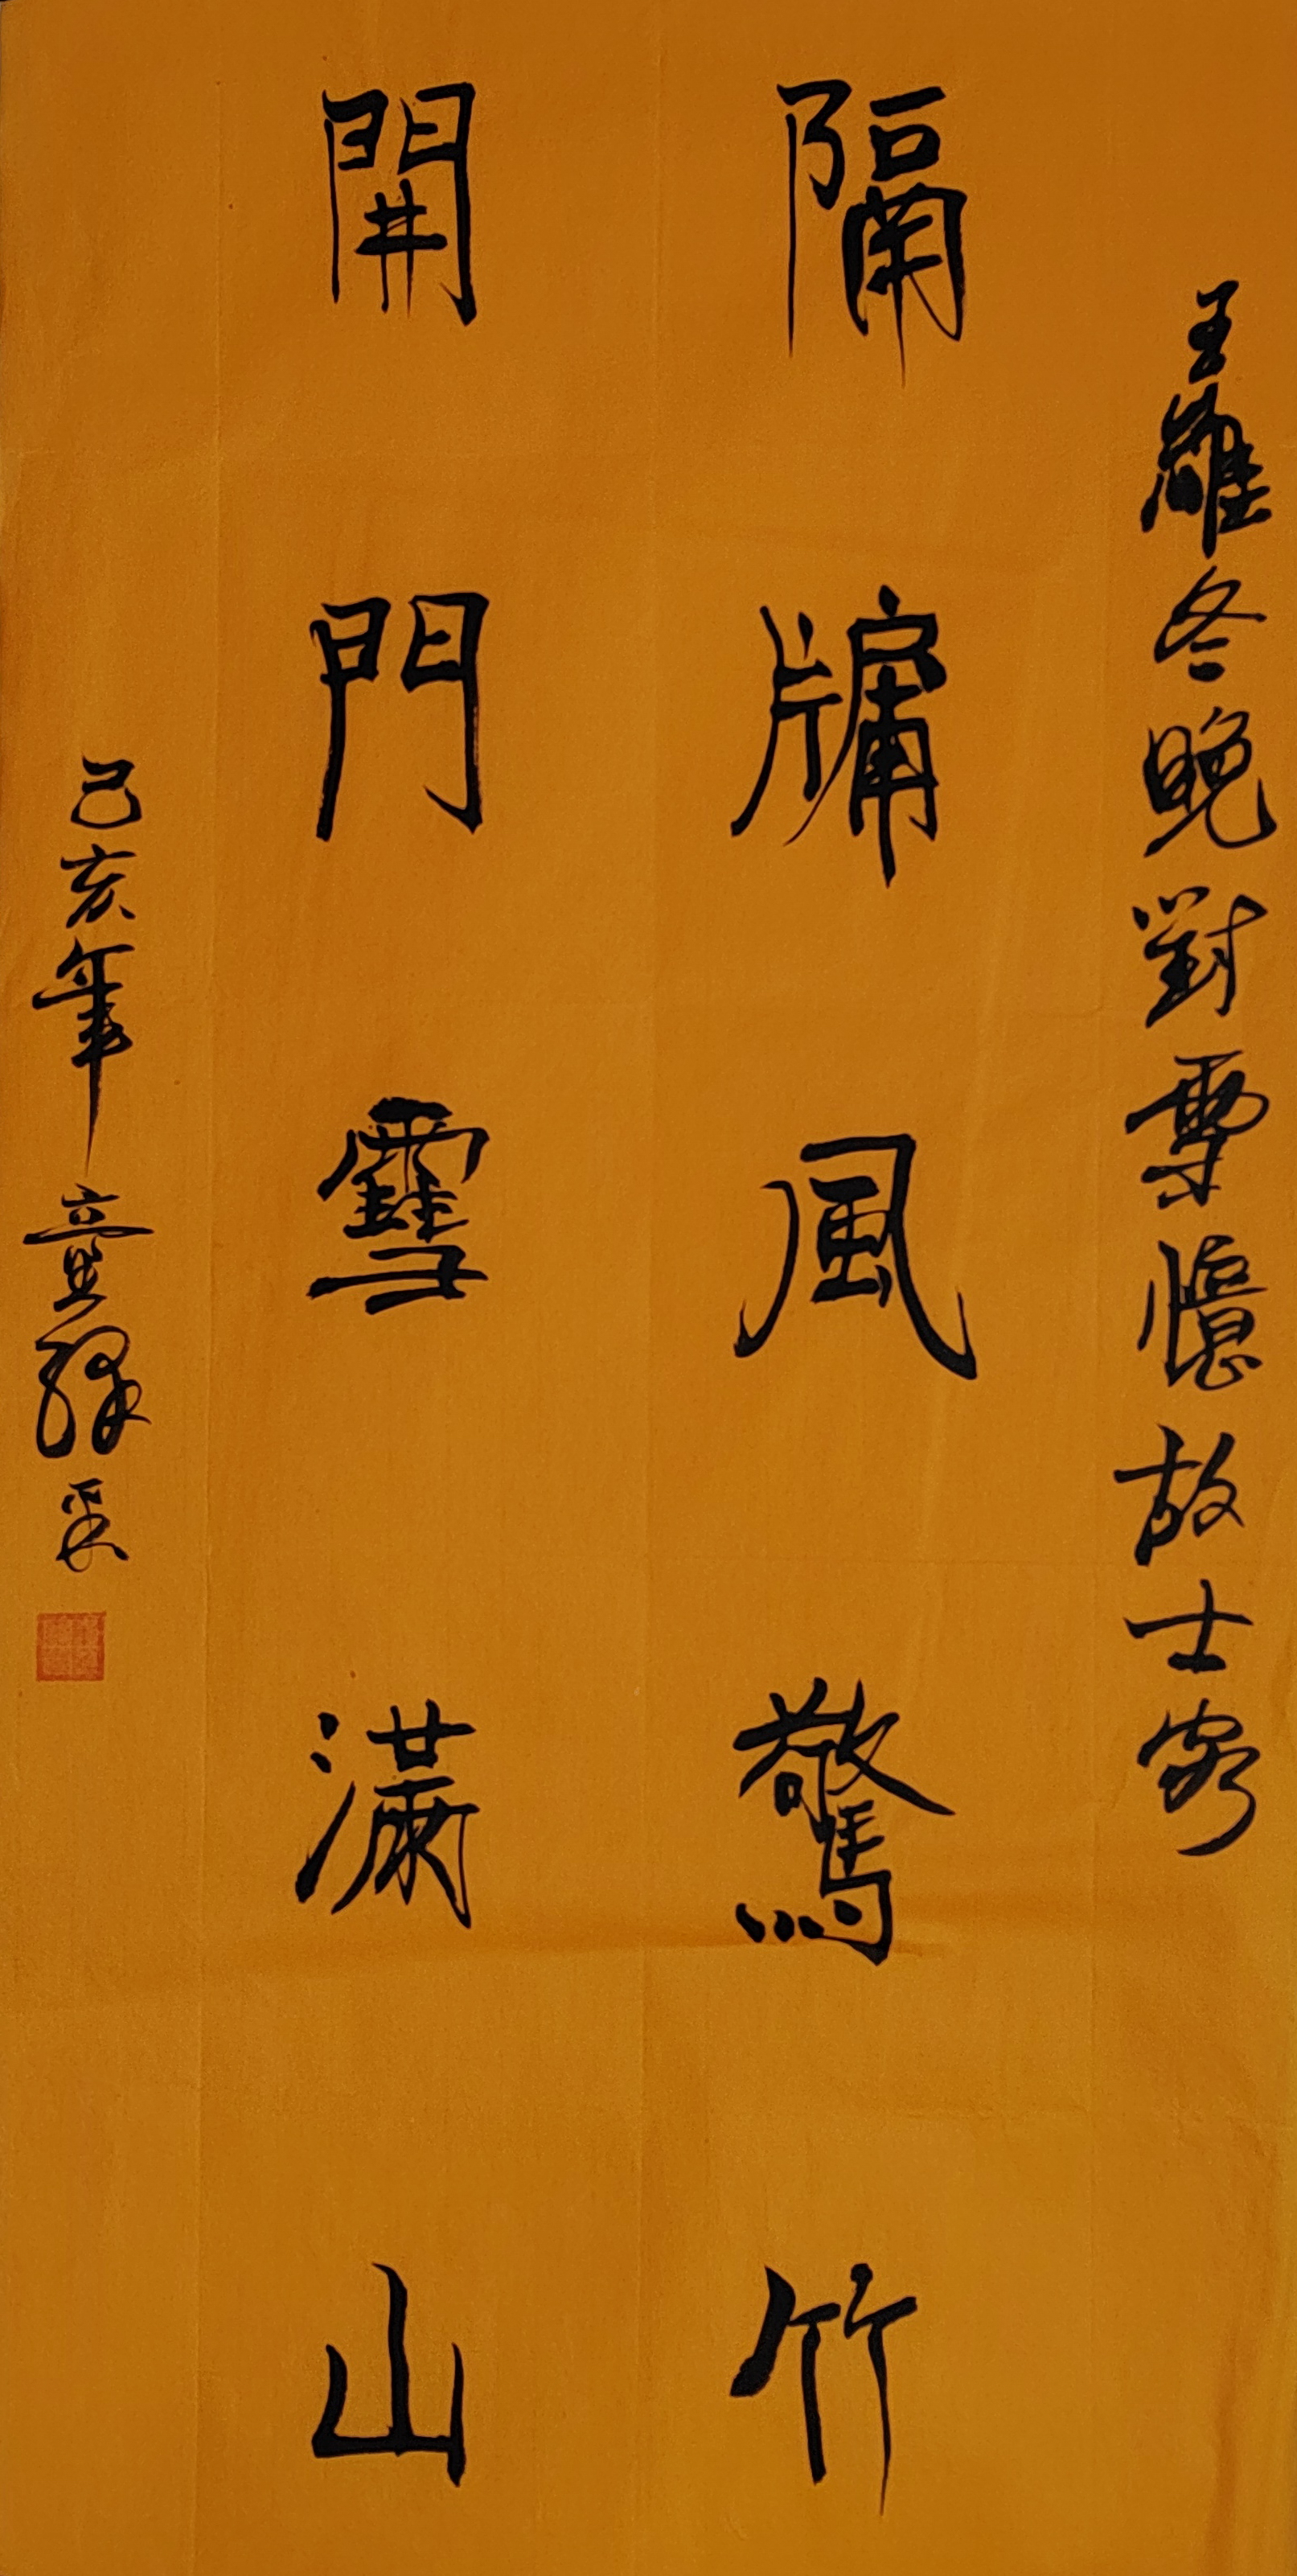 王維冬晚對雪憶故士家
隔牖風驚竹
開門雪滿山
己亥年